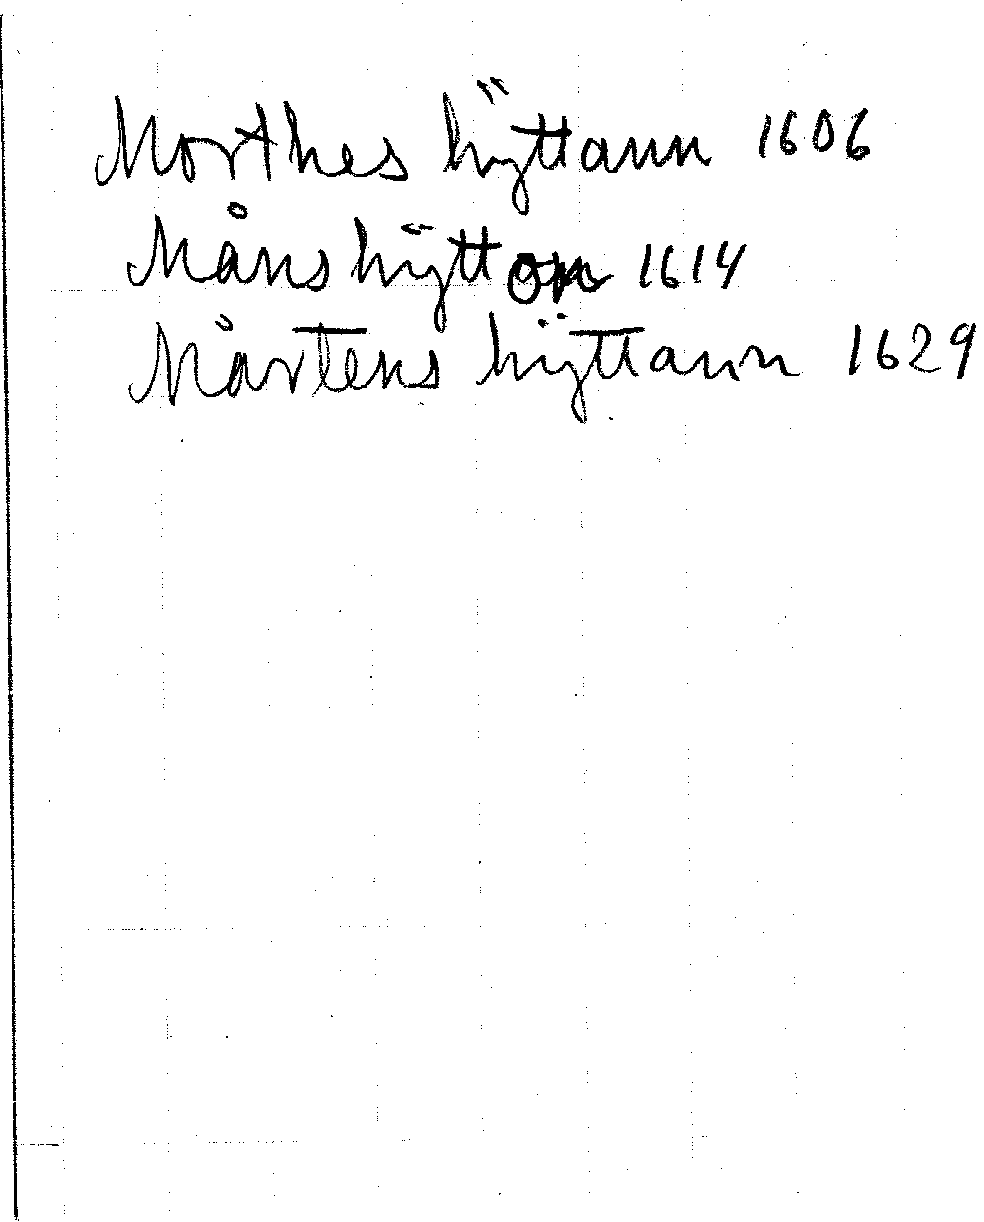 Morthes hÿttann 1606
Måns hÿtton 1614
Mårtens hÿttann 1629